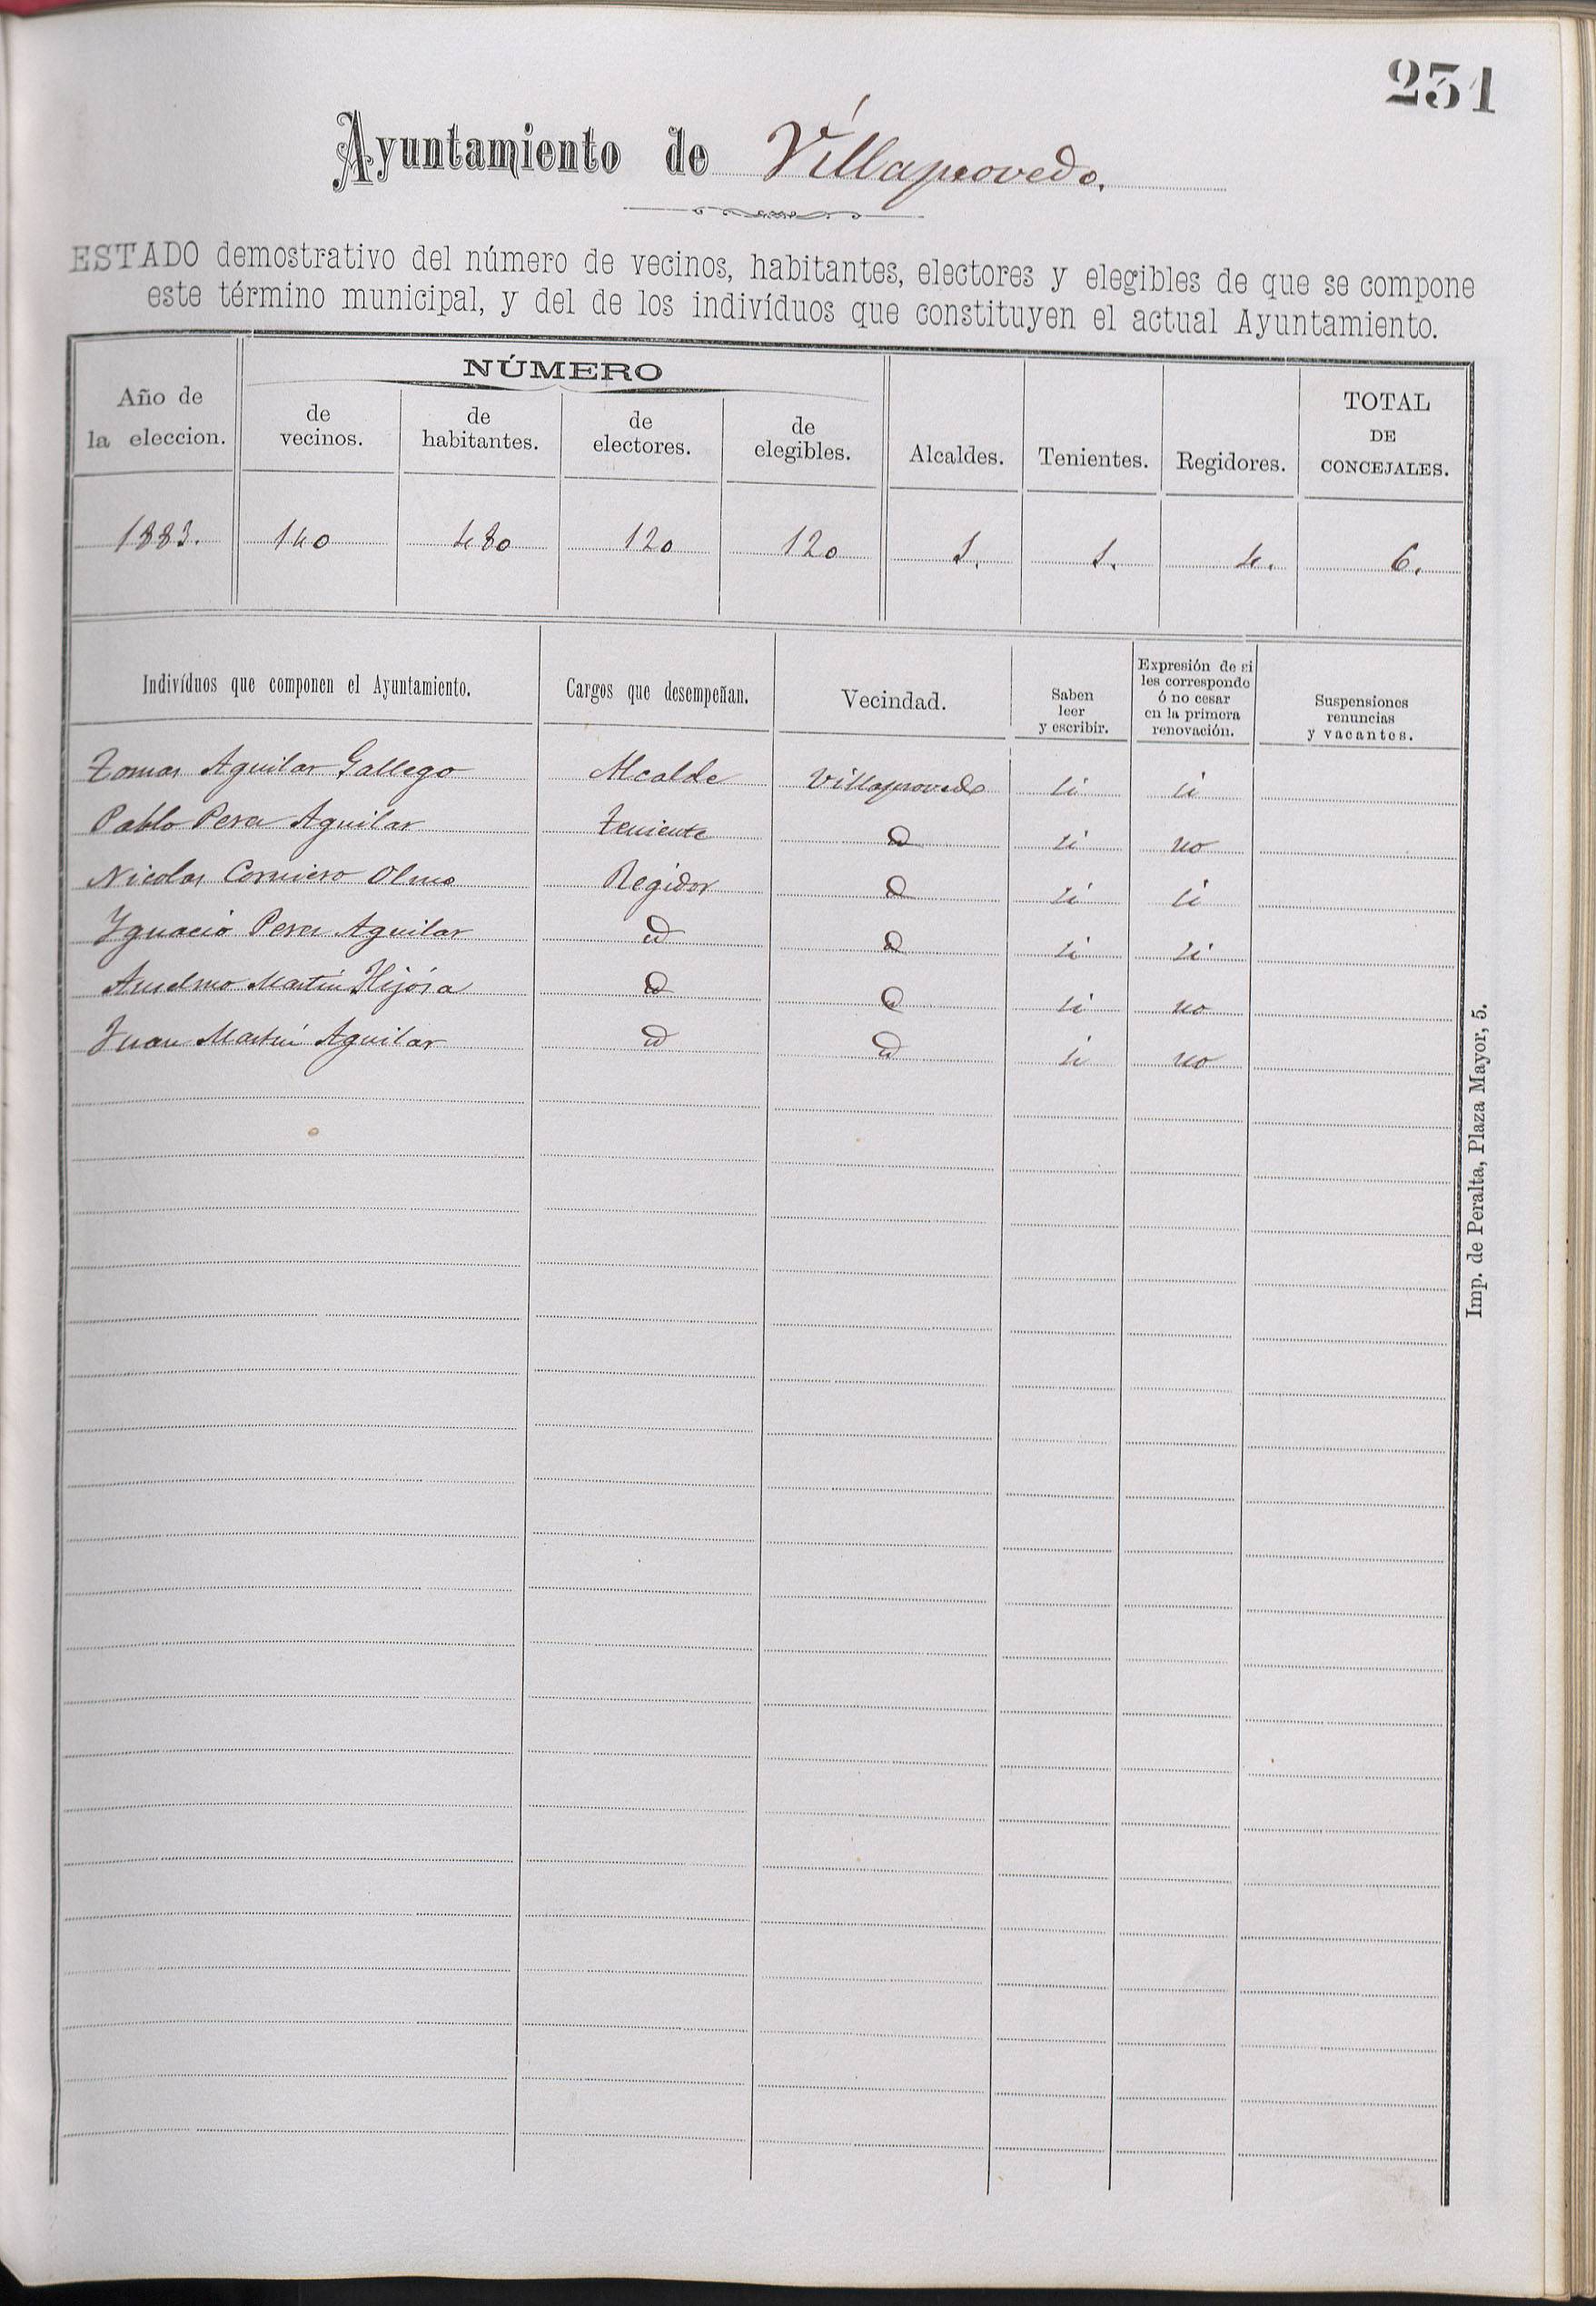 231
Ayuntamiento de Villaprovedo.
ESTADO demostrativo del número de vecinos, habitantes, electores y elegibles de que se compone
este término municipal, y del de los indivíduos que constituyen el actual Ayuntamiento.
Año de la eleccion. NÚMERO de vecinos. de habitantes. de electores. de elegibles. Alcaldes. Tenientes. Regidores. TOTAL DE CONCEJALES.
1883. 140 480 120 120 1. 1. 4. 6.
Indivíduos que componen el Ayuntamiento. Cargos que desempeñan. Vecindad. Saben leer y escribir. Expresión de si les corresponde ó no cesar en la primera renovación. Suspensiones renuncias y vacantes.
Tomas Aguilar Gallego Alcalde Villaprovedo si si
Pablo Perez Aguilar Teniente id si no
Nicolas Olmo Regidor id si si
Ygnacio Perez Aguilar id id si si
Anselmo Martin Hijosa id id si no
Juan Martin Aguilar id id si no
Imp. de Peralta, Plaza Mayor, 5.